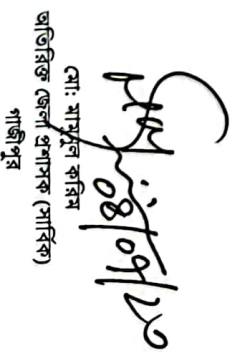 ০৪/০৭/২৩
মো: মামুনুল করিম
অতিরিক্ত জেলা প্রশাসক (সার্বিক)
গাজীপুর